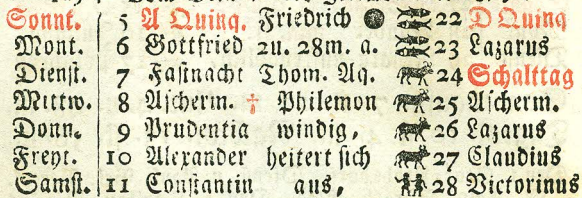 Sonnt. 5 A Quinq. Friedrich 22 D Quinq
Mont. 6 Gottfried 2u. 28m. a. 23 Lazarus
Dienſt. 7 Faſtnacht Thom. Aq. 24 Schalttag
Mittw. 8 Aſcherm. † Philemon 25 Aſcherm.
Donn. 9 Prudentia windig, 26 Lazarus
Freyt. 10 Alexander heitert ſich 27 Claudius
Samſt. 11 Conſtantin aus, 28 Victorinus